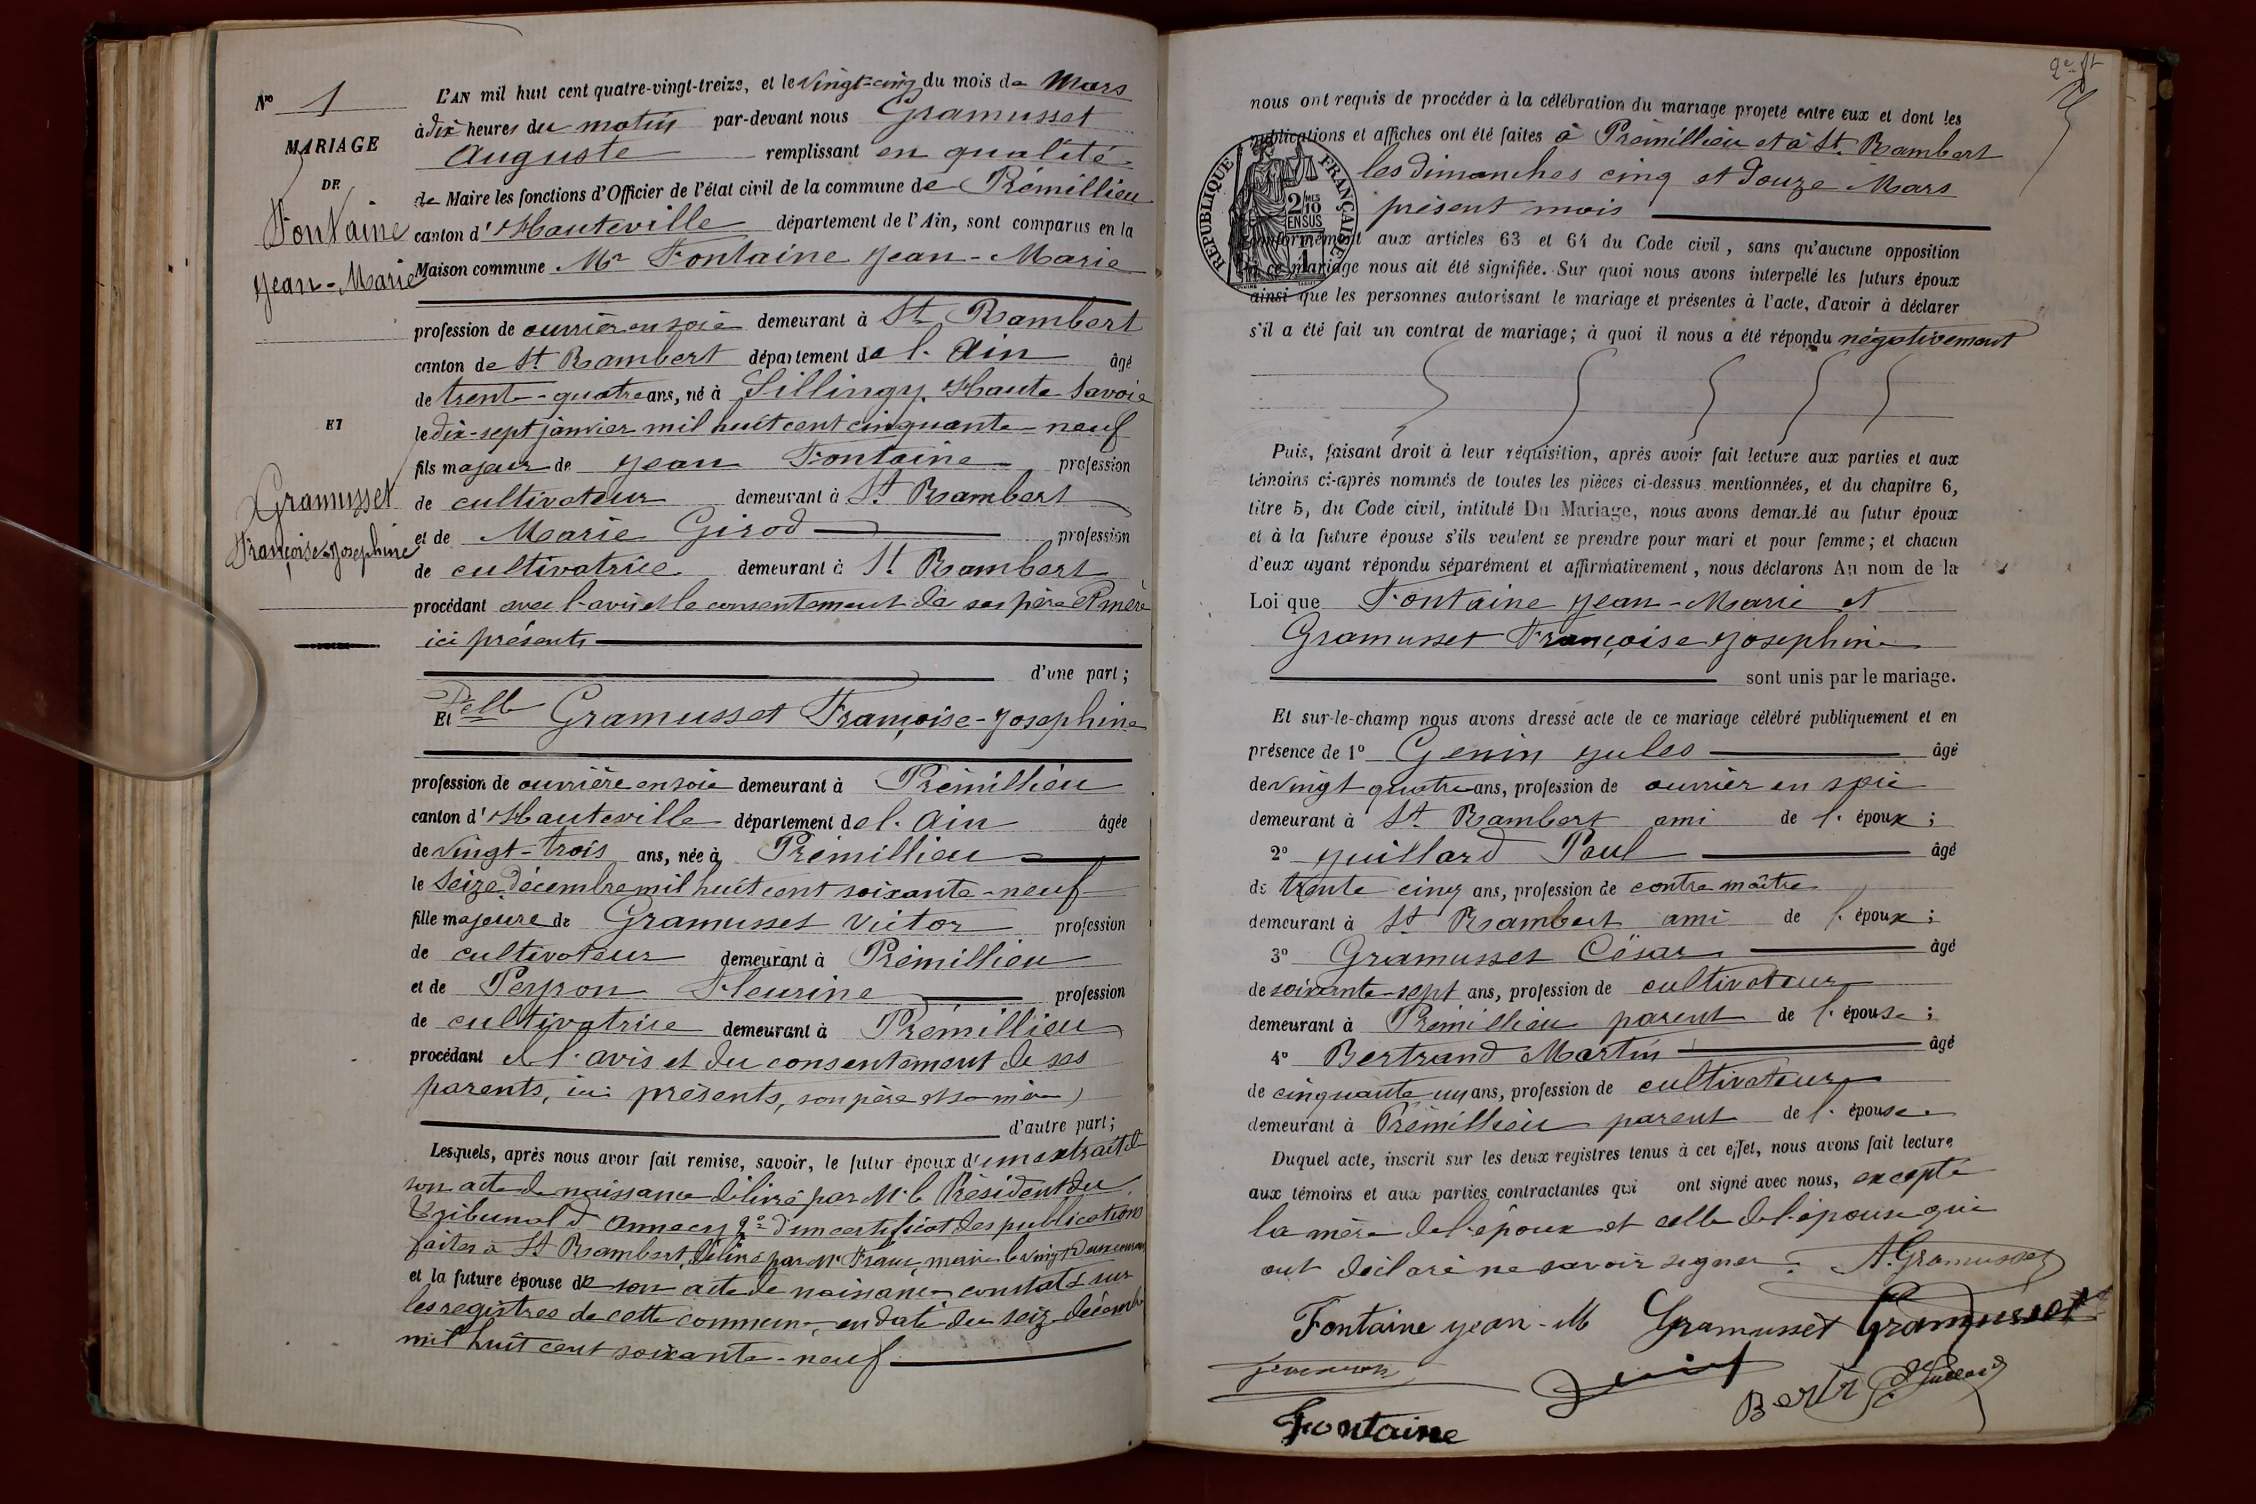 N° 1
MARIAGE
DE
Fontaine
Jean-Marie
ET
Gramusset
Françoise-Josephine
L'AN mil huit cent quatre-vingt-treize, et le vingt-cinq du mois de Mars
à dix heures du matin par-devant nous Gramusset
Auguste remplissant en qualité
de Maire les fonctions d'Officier de l'état civil de la commune de Prémillieu
canton d'Hauteville département de l'Ain, sont comparus en la
Maison commune Mr Fontaine Jean-Marie
profession de ouvrier en soie demeurant à St Rambert
canton de St Rambert département de l'Ain âgé
de trente-quatre ans, né à Sillingy, Haute Savoie
le dix-sept janvier mil huit cent cinquante-neuf
fils majeur de Jean Fontaine profession
de cultivateur demeurant à St Rambert
et de Marie Girod profession
de cultivatrice demeurant à St Rambert
procédant avec l'avis et le consentement de ses père et mère
ici présents
d'une part;
Et Delle Gramusset Françoise-Josephine
profession de ouvrière en soie demeurant à Prémillieu
canton d'Hauteville département de l'Ain âgée
de vingt-trois ans, née à Prémillieu
le seize décembre mil huit cent soixante-neuf
fille majeure de Gramusset Victor profession
de cultivateur demeurant à Prémillieu
et de Peyron Fleurine profession
de cultivatrice demeurant à Prémillieu
procédant de l'avis et du consentement de ses
parents, ici présents, son père et sa mère
d'autre part;
Lesquels, après nous avoir fait remise, savoir, le futur époux d'un extrait de
son acte de naissance délivré par Mr le Président du
Tribunal d'Annecy 2° d'un certificat des publications
faites à St Rambert, délivré par Mr Franc, maire le vingt deux courant
et la future épouse de son acte de naissance constaté sur
les registres de cette commune, en date du seize décembre
mil huit cent soixante-neuf
nous ont requis de procéder à la célébration du mariage projeté entre eux et dont les
publications et affiches ont été faites à Prémillieu et à St Rambert
les dimanches cinq et douze Mars
présent mois
RÉPUBLIQUE FRANÇAISE
2/10 MES
EN SUS
conformément aux articles 63 et 64 du Code civil, sans qu'aucune opposition
à ce mariage nous ait été signifiée. Sur quoi nous avons interpellé les futurs époux
ainsi que les personnes autorisant le mariage et présentes à l'acte, d'avoir à déclarer
s'il a été fait un contrat de mariage; à quoi il nous a été répondu négativement
Puis, faisant droit à leur réquisition, après avoir fait lecture aux parties et aux
témoins ci-après nommés de toutes les pièces ci-dessus mentionnées, et du chapitre 6,
titre 5, du Code civil, intitulé Du Mariage, nous avons demandé au futur époux
et à la future épouse s'ils veulent se prendre pour mari et pour femme; et chacun
d'eux ayant répondu séparément et affirmativement, nous déclarons Au nom de la
Loi que Fontaine Jean-Marie et
Gramusset Françoise Josephine
sont unis par le mariage.
Et sur-le-champ nous avons dressé acte de ce mariage célébré publiquement et en
présence de 1° Genin Jules âgé
de vingt quatre ans, profession de ouvrier en soie
demeurant à St Rambert ami de l'époux;
2° Juillard Paul âgé
de trente cinq ans, profession de contre maître
demeurant à St Rambert ami de l'époux;
3° Gramusset César âgé
de soixante-sept ans, profession de cultivateur
demeurant à Prémillieu parent de l'épouse;
4° Bertrand Martin âgé
de cinquante un ans, profession de cultivateur
demeurant à Prémillieu parent de l'épouse.
Duquel acte, inscrit sur les deux registres tenus à cet effet, nous avons fait lecture
aux témoins et aux parties contractantes qui ont signé avec nous, excepté
la mère de l'époux et celle de l'épouse qui
ont déclaré ne savoir signer. A. Gramusset
Fontaine Jean-M Gramusset Gramusset
Fontaine